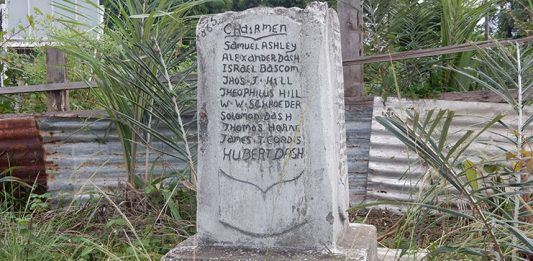 Chairmen
Samuel Ashley
Alexander Dash
Israel Bascom
Thos. J. Hill
Theophilus Hill
W. W. Schroeder
Solomon Dash
Thomas Horne
James T. Cordis
Hubert Dash